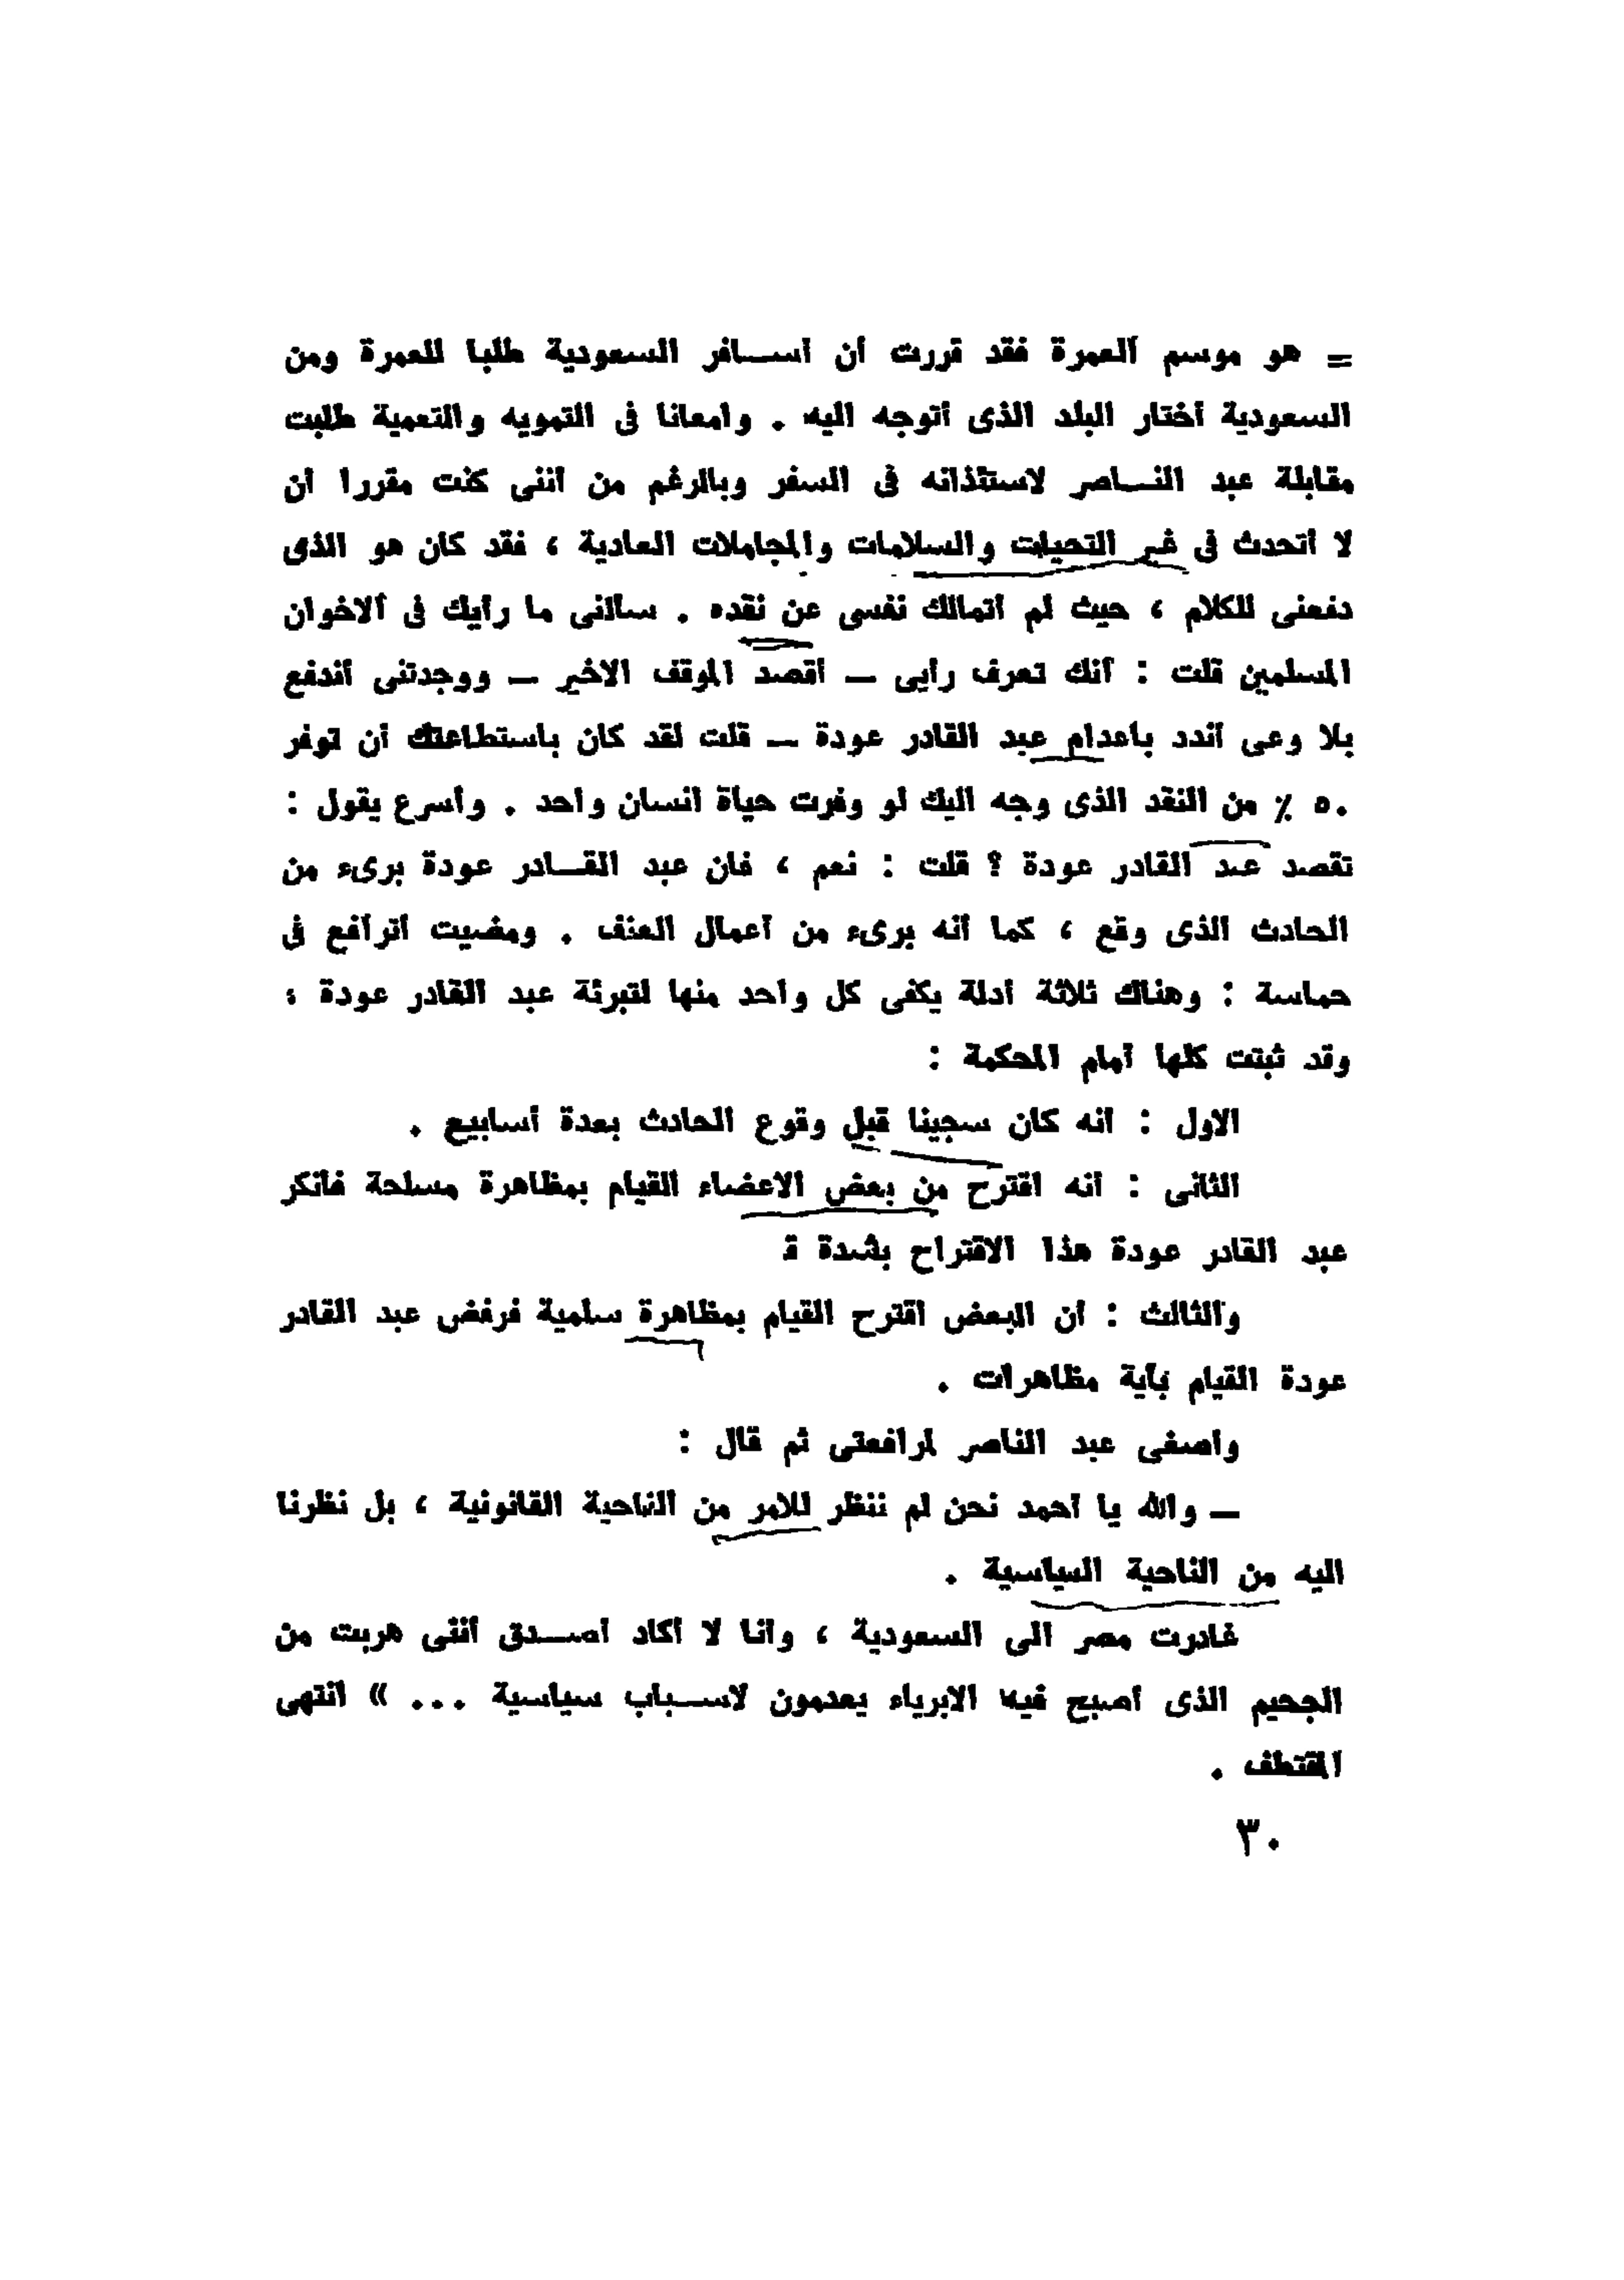 = هو موسم العمرة فقد قررت أن أسافر السعودية طلبا للعمرة ومن
السعودية أختار البلد الذى أتوجه اليه . وامعانا فى التمويه والتعمية طلبت
مقابلة عبد الناصر لاستئذانه فى السفر وبالرغم من أننى كنت مقررا أن
لا أتحدث فى غير التحيات والسلامات والمجاملات العادية ، فقد كان هو الذى
دفعنى للكلام ، حيث لم أتمالك نفسى عن نقده . سألنى ما رأيك فى الاخوان
المسلمين قلت : أنك تعرف رأيى — أقصد الموقف الاخير — ووجدتنى أندفع
بلا وعى أندد باعدام عبد القادر عودة — قلت لقد كان باستطاعتك أن توفر
٥٠ ٪ من النقد الذى وجه اليك لو وفرت حياة انسان واحد . وأسرع يقول :
تقصد عبد القادر عودة ؟ قلت : نعم ، فان عبد القادر عودة برىء من
الحادث الذى وقع ، كما أنه برىء من أعمال العنف . ومضيت أترافع فى
حماسة : وهناك ثلاثة أدلة يكفى كل واحد منها لتبرئة عبد القادر عودة ؛
وقد ثبتت كلها أمام المحكمة :
الاول : انه كان سجينا قبل وقوع الحادث بعدة أسابيع .
الثانى : انه اقترح من بعض الاعضاء القيام بمظاهرة مسلحة فأنكر
عبد القادر عودة هذا الاقتراح بشدة ة
والثالث : أن البعض اقترح القيام بمظاهرة سلمية فرفض عبد القادر
عودة القيام بأية مظاهرات .
وأصغى عبد الناصر لمرافعتى ثم قال :
— والله يا أحمد نحن لم ننظر للامر من الناحية القانونية ، بل نظرنا
اليه من الناحية السياسية .
غادرت مصر الى السعودية ، وأنا لا أكاد أصدق أننى هربت من
الجحيم الذى أصبح فيه الابرياء يعدمون لاسباب سياسية ... » انتهى
المقتطف .
٣٠